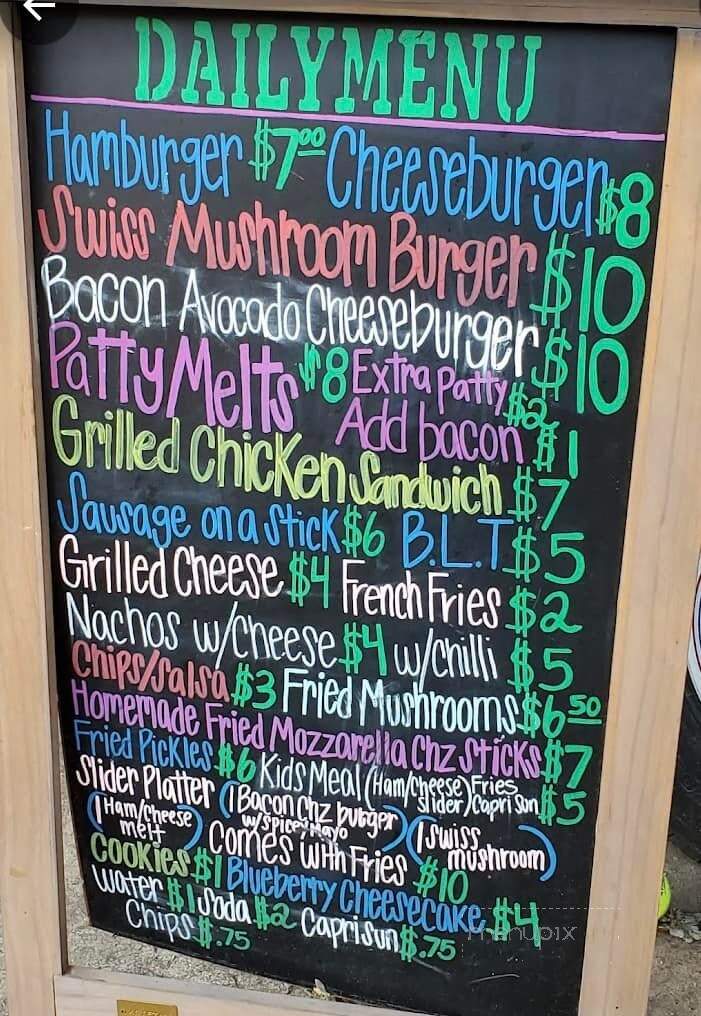 DAILY MENU
Hamburger $7.00 Cheeseburger $8
Swiss Mushroom Burger $10
Bacon Avocado Cheeseburger $10
Patty Melts $8 Extra patty $2
Add bacon $1
Grilled Chicken Sandwich $7
Sausage on a Stick $6 B.L.T $5
Grilled Cheese $4 French Fries $2
Nachos w/cheese $4 w/chilli $5
Chips/Salsa $3 Fried Mushrooms $6.50
Homemade Fried Mozzarella Chz Sticks $7
Fried Pickles $6 Kids Meal (Ham/Cheese slider) Fries Capri Sun $5
Slider Platter (1 Bacon Chz burger w/Spicey Mayo)
(1 Ham/Cheese melt) (1 Swiss mushroom)
Comes with Fries $10
Cookies $1 Blueberry Cheesecake $4
Water $1 Soda $2 Capri Sun $.75
Chips $.75
menupix